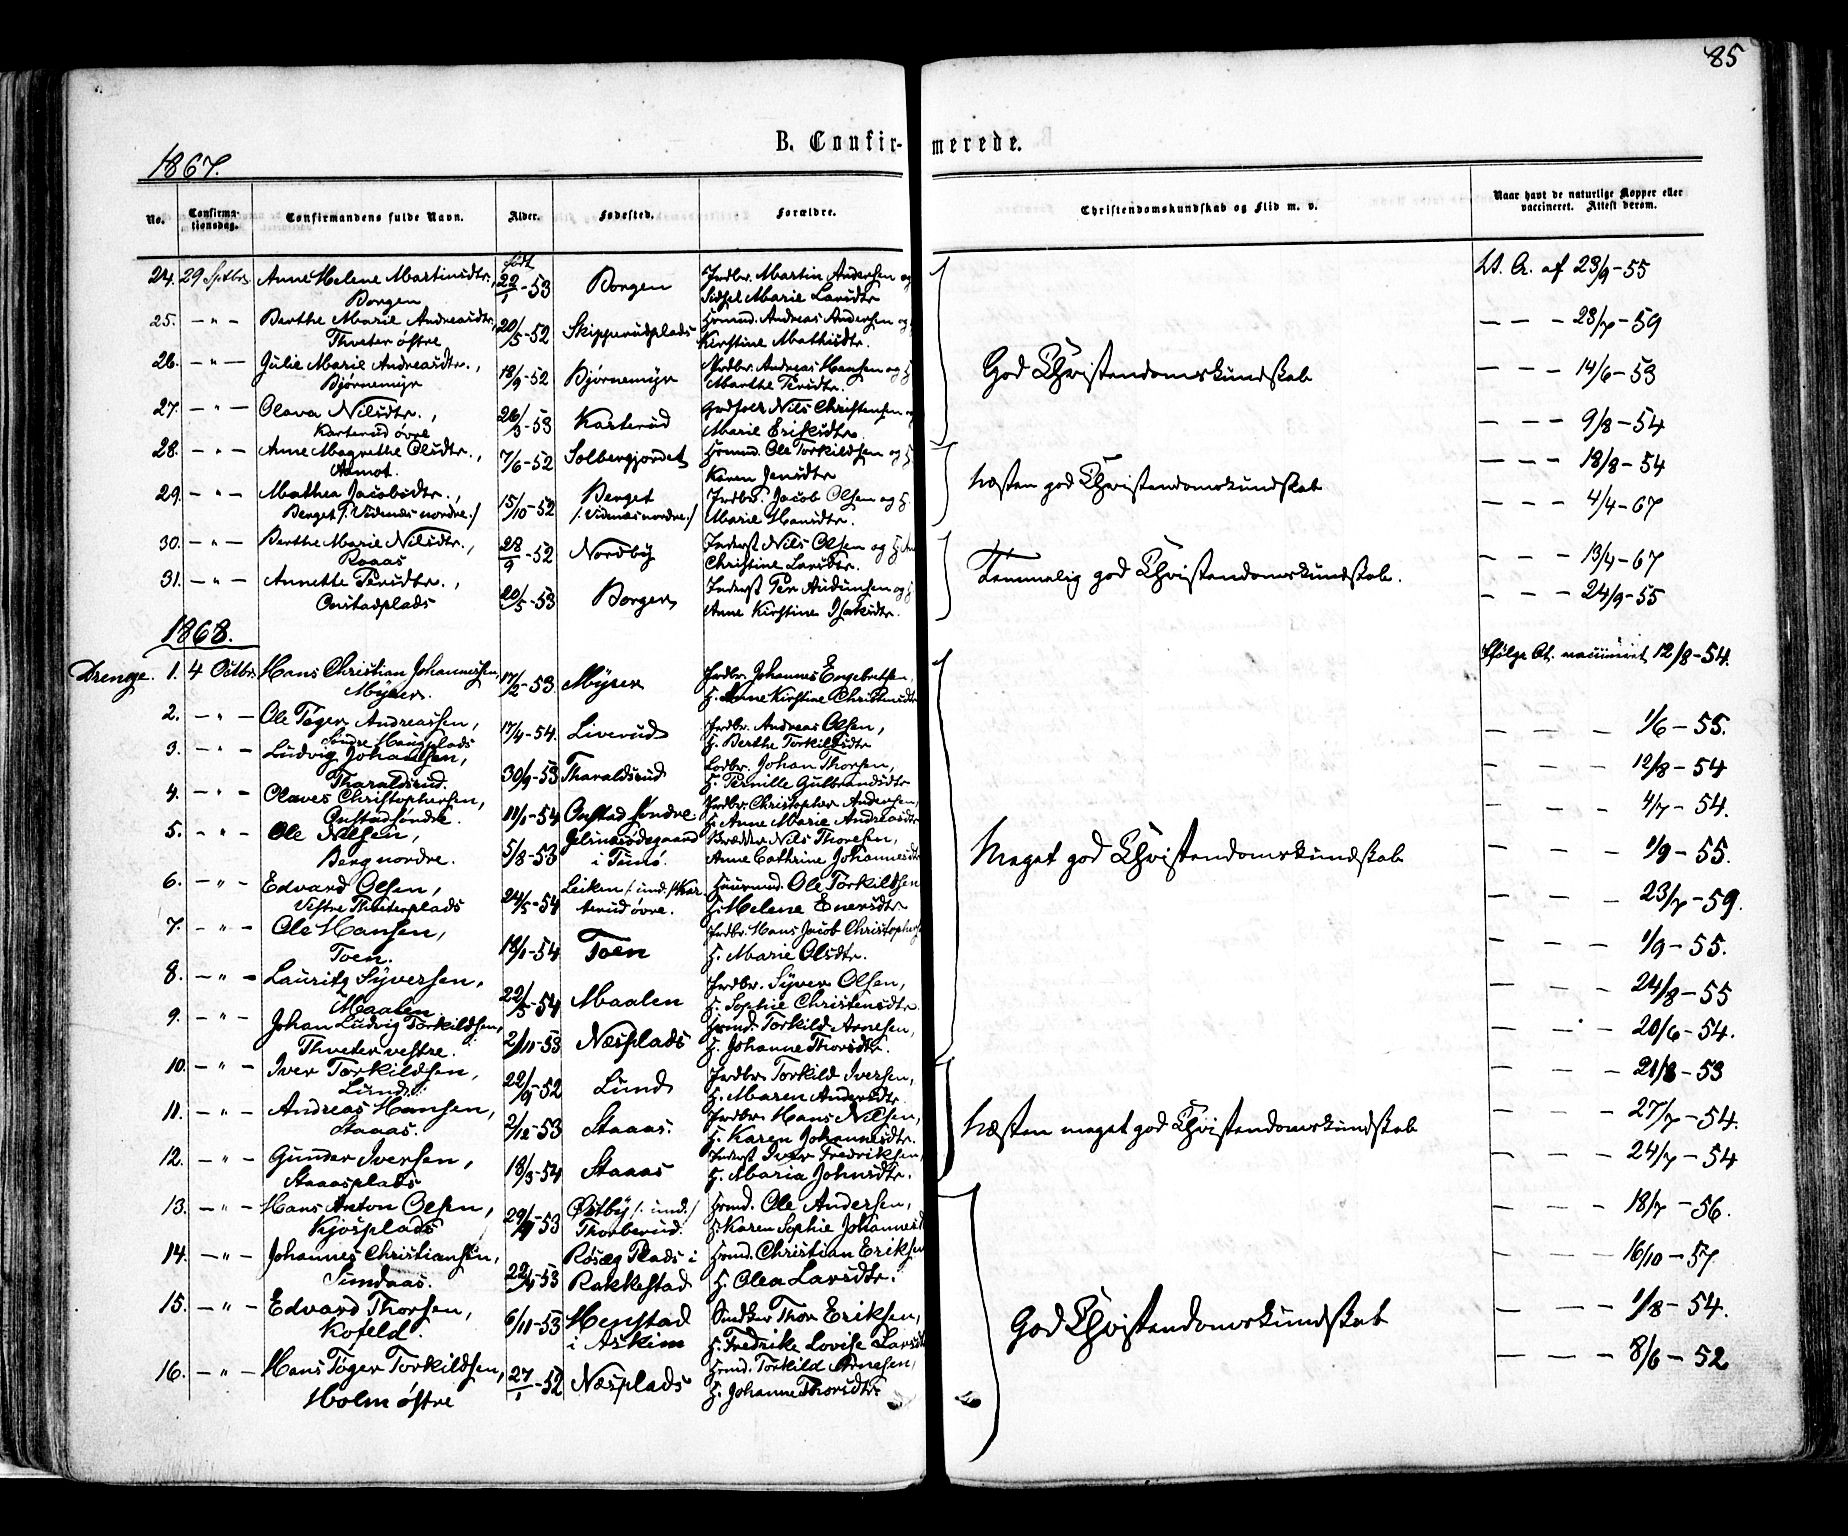 85
B. Confir-merede.
1867.
No. Confirma-tionsdag. Confirmandens fulde Navn. Alder. Fødested. Forældre. Christendomskundskab og Flid m. v. Naar havt de naturlige Kopper eller vaccineret. Attest derom.
født
24. 29 Septbr Anne Helene Martinsdtr., 22/1-53 Borgen Grdbr. Martin Andersen og 23/9-55
Borgen Sidsel Marie Larsdtr
25. — " — Berthe Marie Andreasdtr., 20/5-52 Skipperudplads Huusmd. Andreas Andersen og — — — 23/7-59
Thveter østre Kirstine Mathisdtr.
26. — " — Julie Marie Andreasdtr., 18/9-52 Bjørnemyr Andreas Hansen og H God Christendomskundskab — — — 14/6-53
Bjørnemyr Marthe Persdtr.
27. — " — Olava Nilsdtr., 26/3-53 Karterud Nils Christensen og — — — 9/8-54
Karterud øvre Marie Eriksdtr.
28. — " — Anne Magrethe Olsdtr., 7/6-52 Solbergjordet Ole Torkildsen og H — — — 18/8-54
Aamot. Karen Jensdtr
29. — " — Mathea Jacobsdtr., 15/10-52 Berget Grdbr. Jacob Olsen og H næsten god Christendomskundskab — — — 4/4-67
Berget /: Vidnæs nordre :/ /: Vidnæs nordre :/ Marie Hansdtr.
30. — " — Berthe Marie Nilsdtr., 28/9-52 Nordby Inderst Nils Olsen og H — — — 13/4-67
Roaas Christine Larsdtr.
31. — " — Annette Persdtr., 20/5-53 Borgen Inderst Per Audunsen og Temmelig god Christendomskundskab. — — — 24/9-55
Onstadplads Anne Kirstine Isaksdtr.
1868.
Drenge. 1. 4 Octbr Hans Christian Johannesen, 17/2-53 Myrer Grdbr. Johannes Engebretsen, Ifølge At. vaccineret 12/8-54.
Myrer. H. Anne Kirstine Christensdtr
2. — " — Ole Tøger Andreassen, 17/4-54. Liverud Grdbr. Andreas Olsen, — — — 1/6-55.
Søndre Haugplads H. Berthe Torkildsdtr
3. — " — Ludvig Johansen, 30/9-53 Tharaldsrud Johan Thorsen, — — — 12/8-54
Tharaldsrud. H. Pernille Gulbrandsdtr
4. — " — Olaves Christophersen, 11/1-54 Onstad søndre Grdbr. Christopher Andersen, — — — 4/7-54.
Onstad søndre. H. Anne Marie Andreasdtr
5. — " — Ole Nilsen, 5/8-53 Nils Thoresen, Meget god Christendomskundskab — — — 1/9-55.
Berg nordre. i Tunø. Anne Cathrine Johannesdtr
6. — " — Edvard Olsen, 24/5-54 Leiken /: und. :/ Kar- Huusmd. Ole Torkildsen — — — 23/7-59.
Vestre Thveterplads terud øvre. H. Helene Enersdtr
7. — " — Ole Hansen, 18/1-54 Toen Grdbr. Hans Jacob Christophers — — — 1/9-55.
Toen. H. Marie Olsdtr.
8. — " — Lauritz Syversen, 22/5-54 Maalen Grdbr. Syver Olsen, — — — 24/8-55
Maalen H. Sophie Christensdtr
9. — " — Johan Ludvig Torkildsen, 2/11-53 Næsplads Hmd. Torkild Arnesen, — — — 20/6-54.
Thveter vestre. H. Johanne Thorsdtr.
10. — " — Iver Torkildsen, 22/9-52 Lund Grdbr. Torkild Iversen, — — — 21/8-53
Lund. H. Maren Andersdtr
11. — " — Andreas Hansen, 2/12-53 Staaas. Grdbr. Hans Nilsen, Næsten meget god Christendomskundskab — — — 27/7-54.
Staaas. H. Karen Johannesdtr.
12. — " — Gunder Iversen, 18/3-54 Staaas Inderst Iver Fredriksen, — — — 24/7-54
Staaasplads H. Maria Johnsdtr.
13. — " — Hans Anton Olsen, 53 Østby /: und. :/ Hmd. Ole Andersen, — — — 18/7-56.
Kjosplads Thorberud. H. Karen Sophie Johannesd
14. — " — Johannes Christiansen, 22/4-53 Røsæg Plads i Hmd. Christian Eriksen — — — 16/10-57
Sundaas. Rakkestad H. Olea Larsdtr.
15. — " — Edvard Thorsen, 6/11-53 Henstad Thor Eriksen, God Christendomskundskab — — — 1/8-54.
Kofeld. i Askim H. Fredrike Lovise Larsdtr
16. — " — Hans Tøger Torkildsen, 27/1-52 Næsplads Hmd. Torkild Arnesen, — — — 8/6-52
Holm østre H. Johanne Thorsdtr